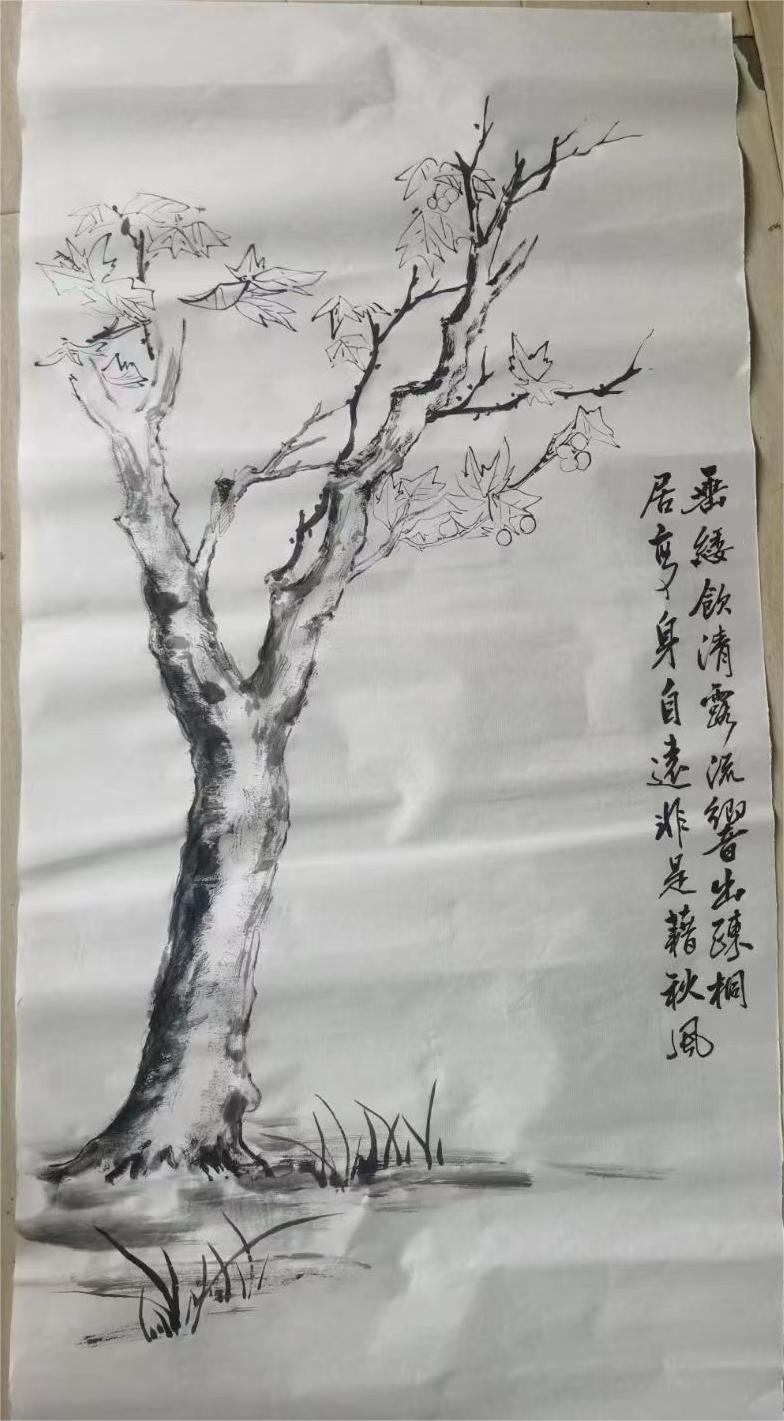 垂緌飲清露流響出疎桐
居高身自遠非是藉秋風